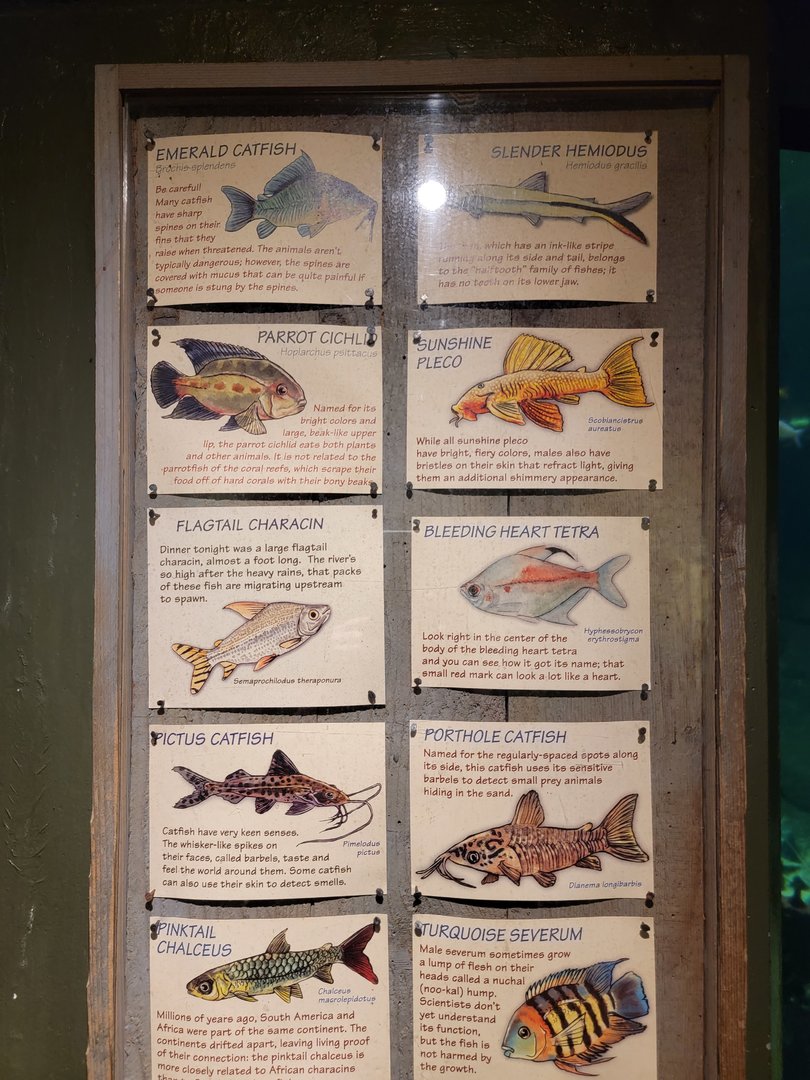 EMERALD CATFISH
Brochis splendens
Be careful!
Many catfish
have sharp
spines on their
fins that they
raise when threatened. The animals aren't
typically dangerous; however, the spines are
covered with mucus that can be quite painful if
someone is stung by the spines.
SLENDER HEMIODUS
Hemiodus gracilis
which has an ink-like stripe
running along its side and tail, belongs
to the "halftooth" family of fishes; it
has no teeth on its lower jaw.
PARROT CICHLID
Hoplarchus psittacus
Named for its
bright colors and
large, beak-like upper
lip, the parrot cichlid eats both plants
and other animals. It is not related to the
parrotfish of the coral reefs, which scrape their
food off of hard corals with their bony beaks.
SUNSHINE
PLECO
Scobiancistrus
aureatus
While all sunshine pleco
have bright, fiery colors, males also have
bristles on their skin that refract light, giving
them an additional shimmery appearance.
FLAGTAIL CHARACIN
Dinner tonight was a large flagtail
characin, almost a foot long. The river's
so high after the heavy rains, that packs
of these fish are migrating upstream
to spawn.
Semaprochilodus theraponura
BLEEDING HEART TETRA
Hyphessobrycon
erythrostigma
Look right in the center of the
body of the bleeding heart tetra
and you can see how it got its name; that
small red mark can look a lot like a heart.
PICTUS CATFISH
Catfish have very keen senses.
The whisker-like spikes on
their faces, called barbels, taste and
feel the world around them. Some catfish
can also use their skin to detect smells.
Pimelodus
pictus
PORTHOLE CATFISH
Named for the regularly-spaced spots along
its side, this catfish uses its sensitive
barbels to detect small prey animals
hiding in the sand.
Dianema longibarbis
PINKTAIL
CHALCEUS
Chalceus
macrolepidotus
Millions of years ago, South America and
Africa were part of the same continent. The
continents drifted apart, leaving living proof
of their connection: the pinktail chalceus is
more closely related to African characins
TURQUOISE SEVERUM
Male severum sometimes grow
a lump of flesh on their
heads called a nuchal
(noo-kal) hump.
Scientists don't
yet understand
its function,
but the fish is
not harmed by
the growth.